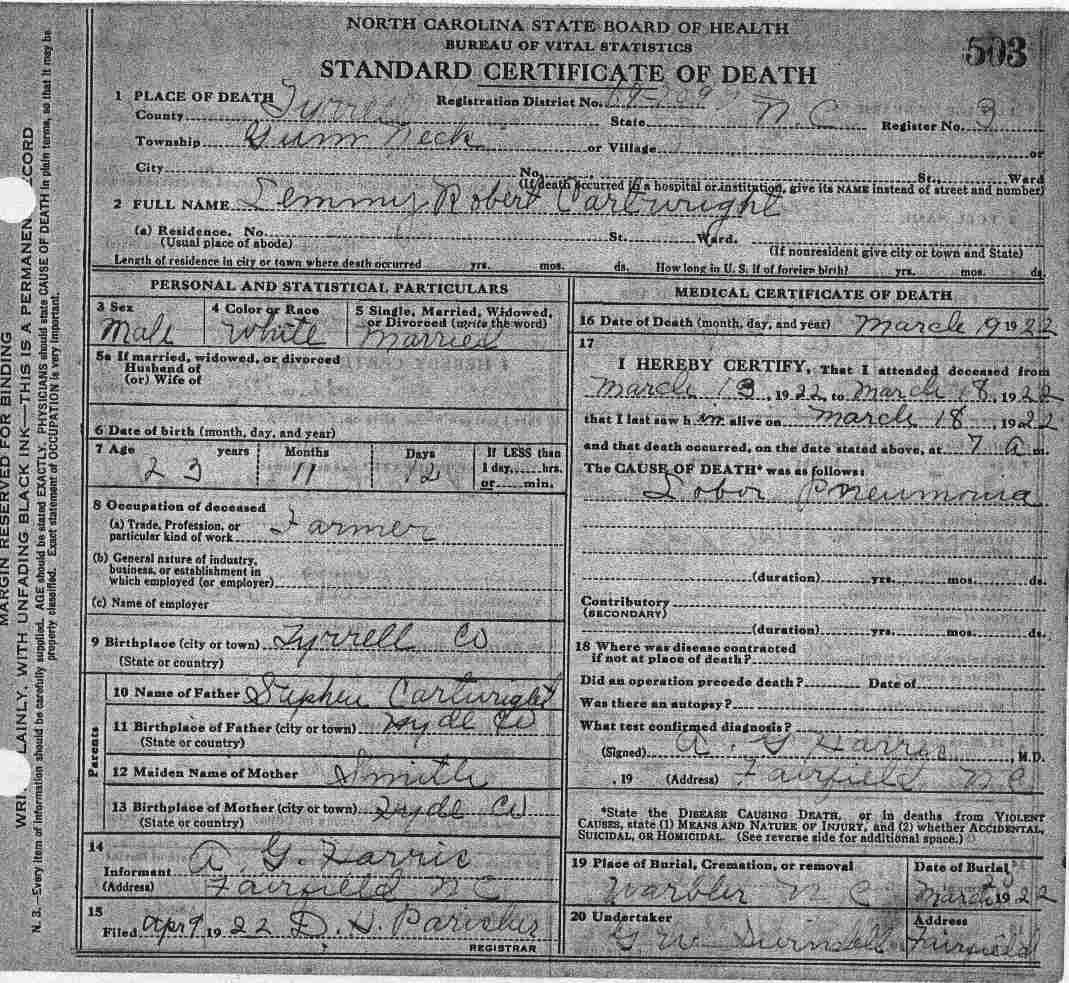 NORTH CAROLINA STATE BOARD OF HEALTH
BUREAU OF VITAL STATISTICS
503
STANDARD CERTIFICATE OF DEATH
1 PLACE OF DEATH Registration District No.
County Tyrrell State N.C Register No. 3
Township Gum Neck or Village or
City No. St., Ward
(If death occurred in a hospital or institution, give its NAME instead of street and number)
2 FULL NAME Lemmy Robert Cartwright
(a) Residence. No. St. Ward.
(Usual place of abode) (If nonresident give city or town and State)
Length of residence in city or town where death occurred yrs. mos. ds. How long in U. S. if of foreign birth? yrs. mos. ds.
PERSONAL AND STATISTICAL PARTICULARS
3 Sex 4 Color or Race 5 Single, Married, Widowed, or Divorced (write the word)
Male White Married
5a If married, widowed, or divorced
Husband of
(or) Wife of
6 Date of birth (month, day, and year)
7 Age years Months Days If LESS than
23 11 12 1 day,......hrs.
or......min.
8 Occupation of deceased
(a) Trade, Profession, or
particular kind of work Farmer
(b) General nature of industry,
business, or establishment in
which employed (or employer)
(c) Name of employer
9 Birthplace (city or town) Tyrrell Co
(State or country)
Parents
10 Name of Father Stephen Cartwright
11 Birthplace of Father (city or town) Hyde Co
(State or country)
12 Maiden Name of Mother Smith
13 Birthplace of Mother (city or town) Hyde Co
(State or country)
14
Informant A. G. Harris
(Address) Fairfield N C
15
Filed Apr 9 1922 D. H.
REGISTRAR
MEDICAL CERTIFICATE OF DEATH
16 Date of Death (month, day, and year) March 19 1922
17
I HEREBY CERTIFY, That I attended deceased from
March 13, 1922 to March 18, 1922
that I last saw h im alive on March 18, 1922
and that death occurred, on the date stated above, at 7 a m.
The CAUSE OF DEATH* was as follows:
Lobor Pneumonia
(duration) yrs. mos. ds.
Contributory
(SECONDARY)
(duration) yrs. mos. ds.
18 Where was disease contracted
if not at place of death?
Did an operation precede death? Date of
Was there an autopsy?
What test confirmed diagnosis?
(Signed) A. G Harris, M.D.
, 19 (Address) Fairfield N C
*State the DISEASE CAUSING DEATH, or in deaths from VIOLENT
CAUSES, state (1) MEANS AND NATURE OF INJURY, and (2) whether ACCIDENTAL,
SUICIDAL, OR HOMICIDAL. (See reverse side for additional space.)
19 Place of Burial, Cremation, or removal Date of Burial
N C March 1922
20 Undertaker Address
G W Fairfield
MARGIN RESERVED FOR BINDING
LAINLY, WITH UNFADING BLACK INK—THIS IS A PERMANEN CORD
N. 3.—Every item of information should be carefully supplied. AGE should be stated EXACTLY. PHYSICIANS should state CAUSE OF DEATH in plain terms, so that it may be
properly classified. Exact statement of OCCUPATION is very important.